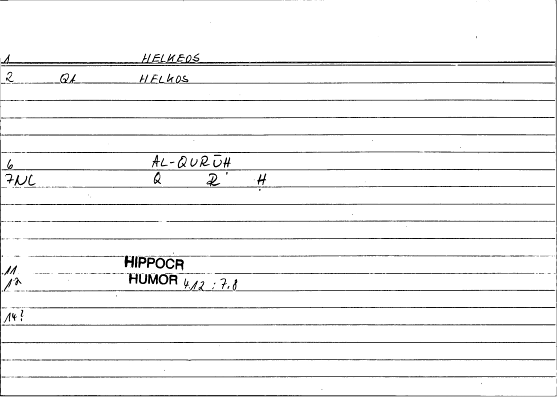 1 HELKEOS
2 QA HELKOS
6 AL-QURŪH
7NC Q R Ḥ
11 HIPPOCR
12 HUMOR 4.12 : 7.8
14!